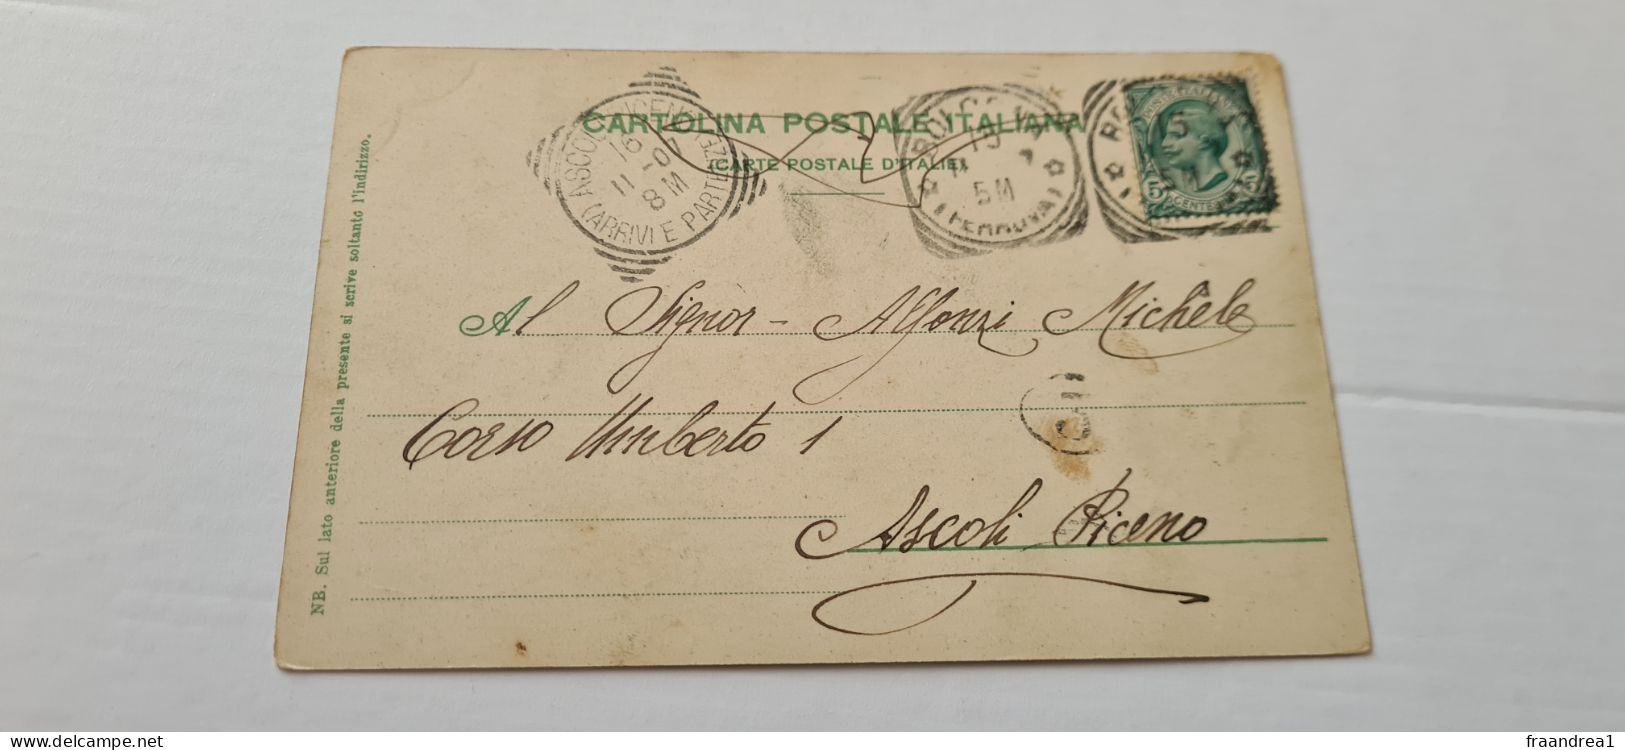 CARTOLINA POSTALE ITALIANA
(CARTE POSTALE D'ITALIE)
ASCOLI PICENO
16 11-07
8M
(ARRIVI E PARTENZE)
15
5M
(FERROVIA)
Al Signor - Alfonzi Michele
Corso Umberto 1
Ascoli Piceno
NB. Sul lato anteriore della presente si scrive soltanto l'indirizzo.
www.delcampe.net
fraandrea1